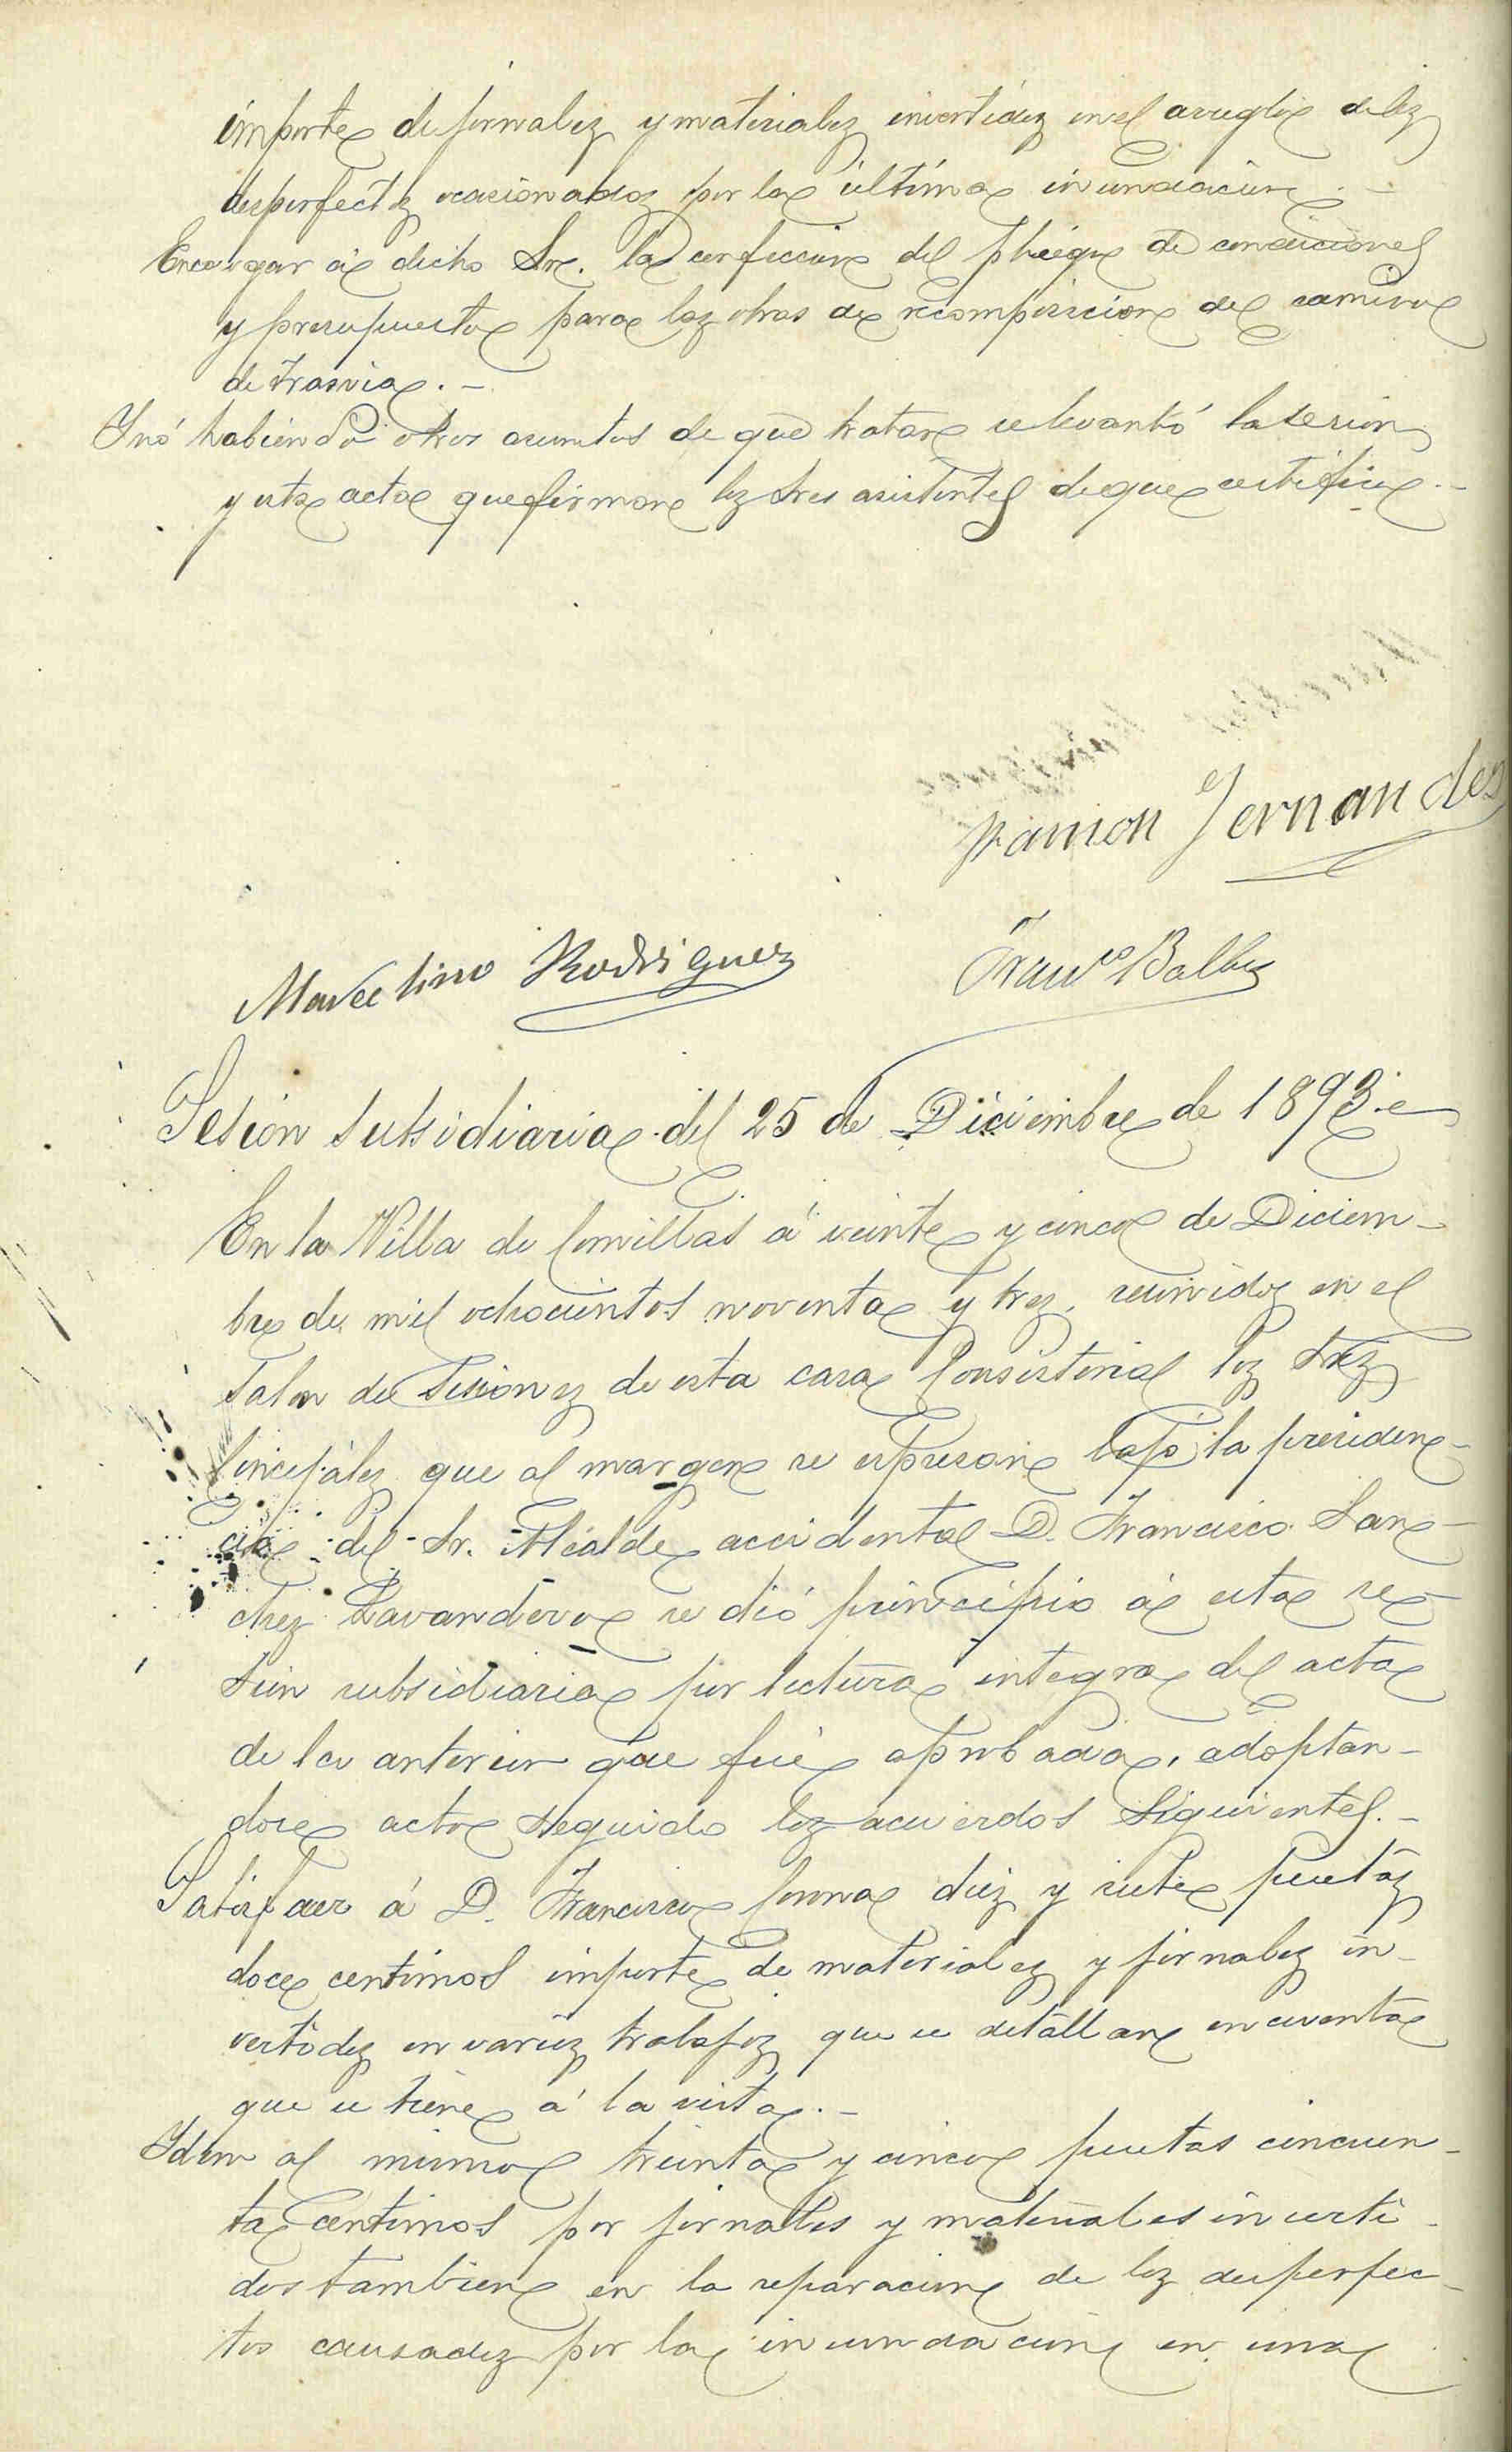 importe de jornales y materiales invertidos en el arreglo de los
desperfectos ocasionados por la última inundación.-
Encargar á dicho Sr. la confección del pliego de condiciones
y presupuesto para las obras de recomposición del camino
de Trasvia.-
Y nó habiendo otros asuntos de que tratar se levantó la sesion
y esta acta que firman los Sres asistentes de que certifico.-
Ramon Fernandez
Marcelino Rodriguez
Franco Balbas
Sesión subsidiaria del 25 de Diciembre de 1893.
En la Villa de Comillas á veinte y cinco de Diciem-
bre de mil ochocientos noventa y tres, reunidos en el
Salon de Sesiones de esta casa Consistorial los Sres
Concejáles que al margen se espresan bajo la presiden-
cia del Sr. Alcalde accidental D. Francisco San-
chez Lavandero se dió principio á esta se-
sion subsidiaria por lectura integra del acta
de la anterior que fué aprobada, adoptan-
dose acto seguido los acuerdos siguientes.-
Satisfacer á D. Francisco diez y siete pesetas
doce centimos importe de materiales y jornales in-
vertidos en varios trabajos que se detallan en cuenta
que se tiene á la vista.-
Idem al mismo treinta y cinco pesetas cincuen-
ta centimos por jornales y materiales inverti-
dos tambien en la reparacion de los desperfec-
tos causados por la inundacion en una